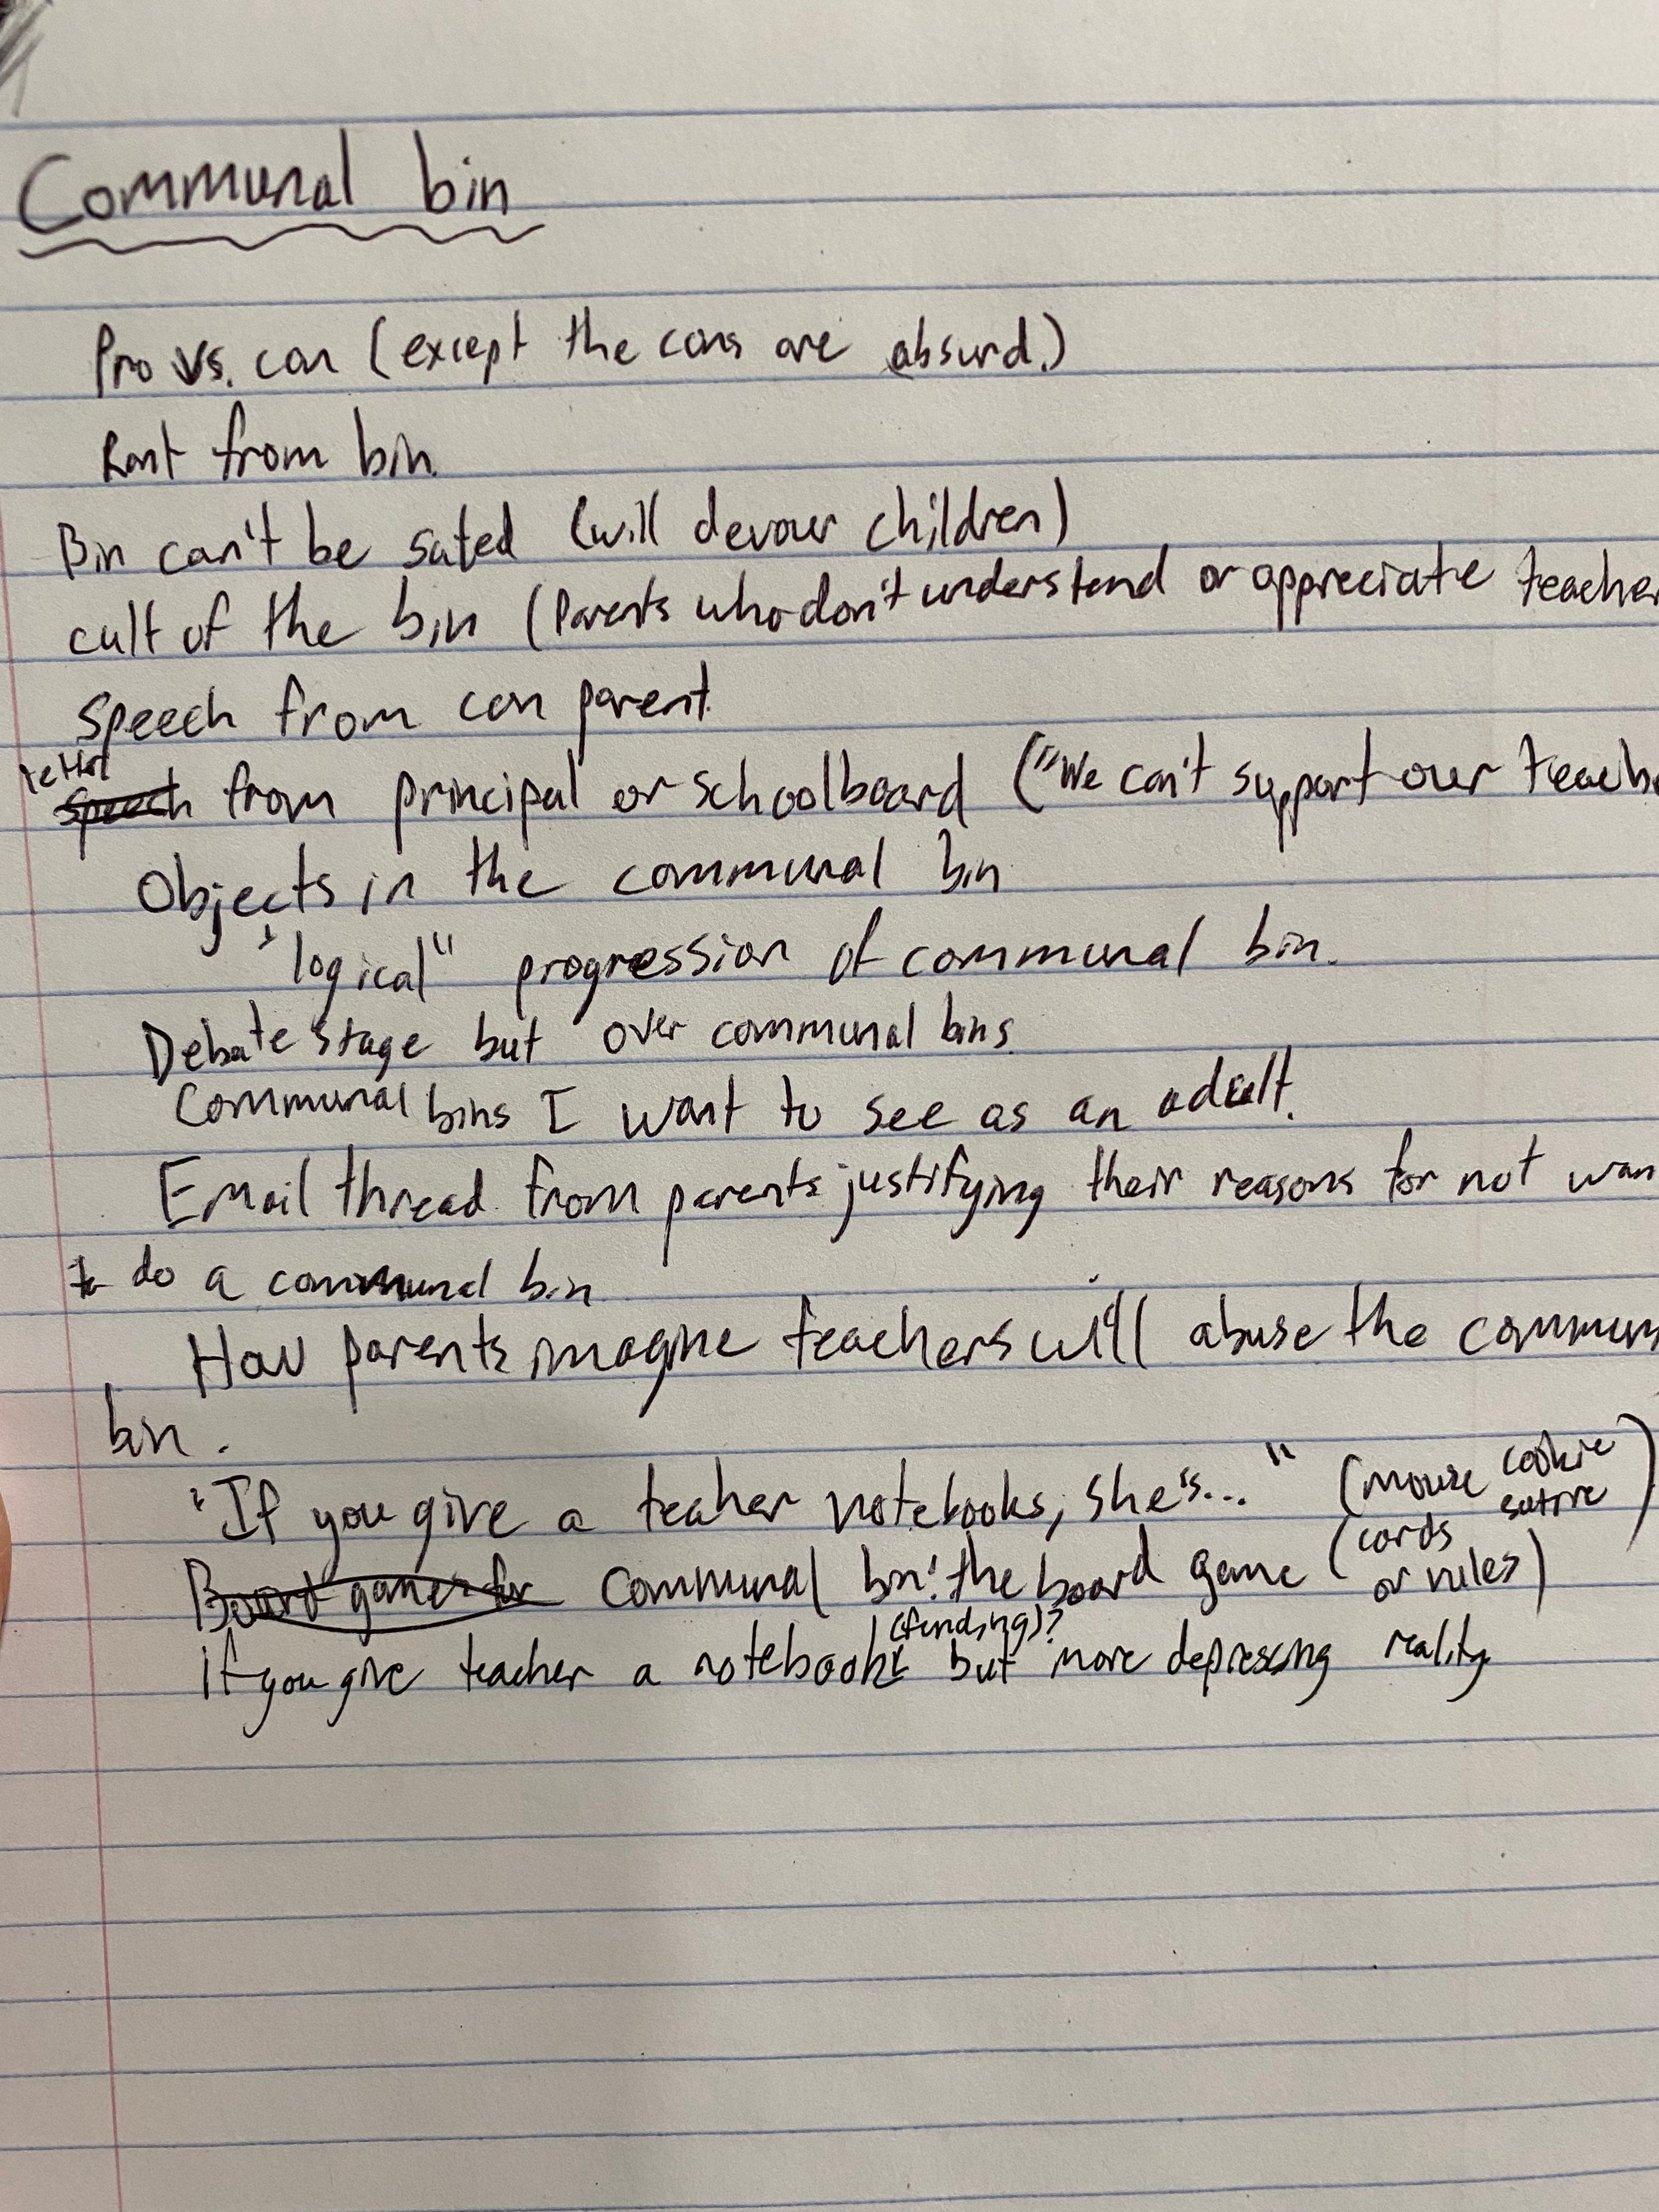 Communal bin
Pro vs. con (except the cons are absurd.)
Rant from bin.
Bin can't be sated (will devour children)
cult of the bin (Parents who don't understand or appreciate teacher
Speech from con parent.
letter
speech from principal or schoolboard ("We can't support our teache
Objects in the communal bin
"logical" progression of communal bin.
Debate stage but over communal bins.
Communal bins I want to see as an adult.
Email thread from parents justifying their reasons for not wan
to do a communal bin
How parents imagine teachers will abuse the commun
bin.
"If you give a teacher notebooks, she's..." (mouse cookie satire)
Board games for Communal bin: the board game (cards or rules)
(funding)?
If you give teacher a notebook but more depressing reality